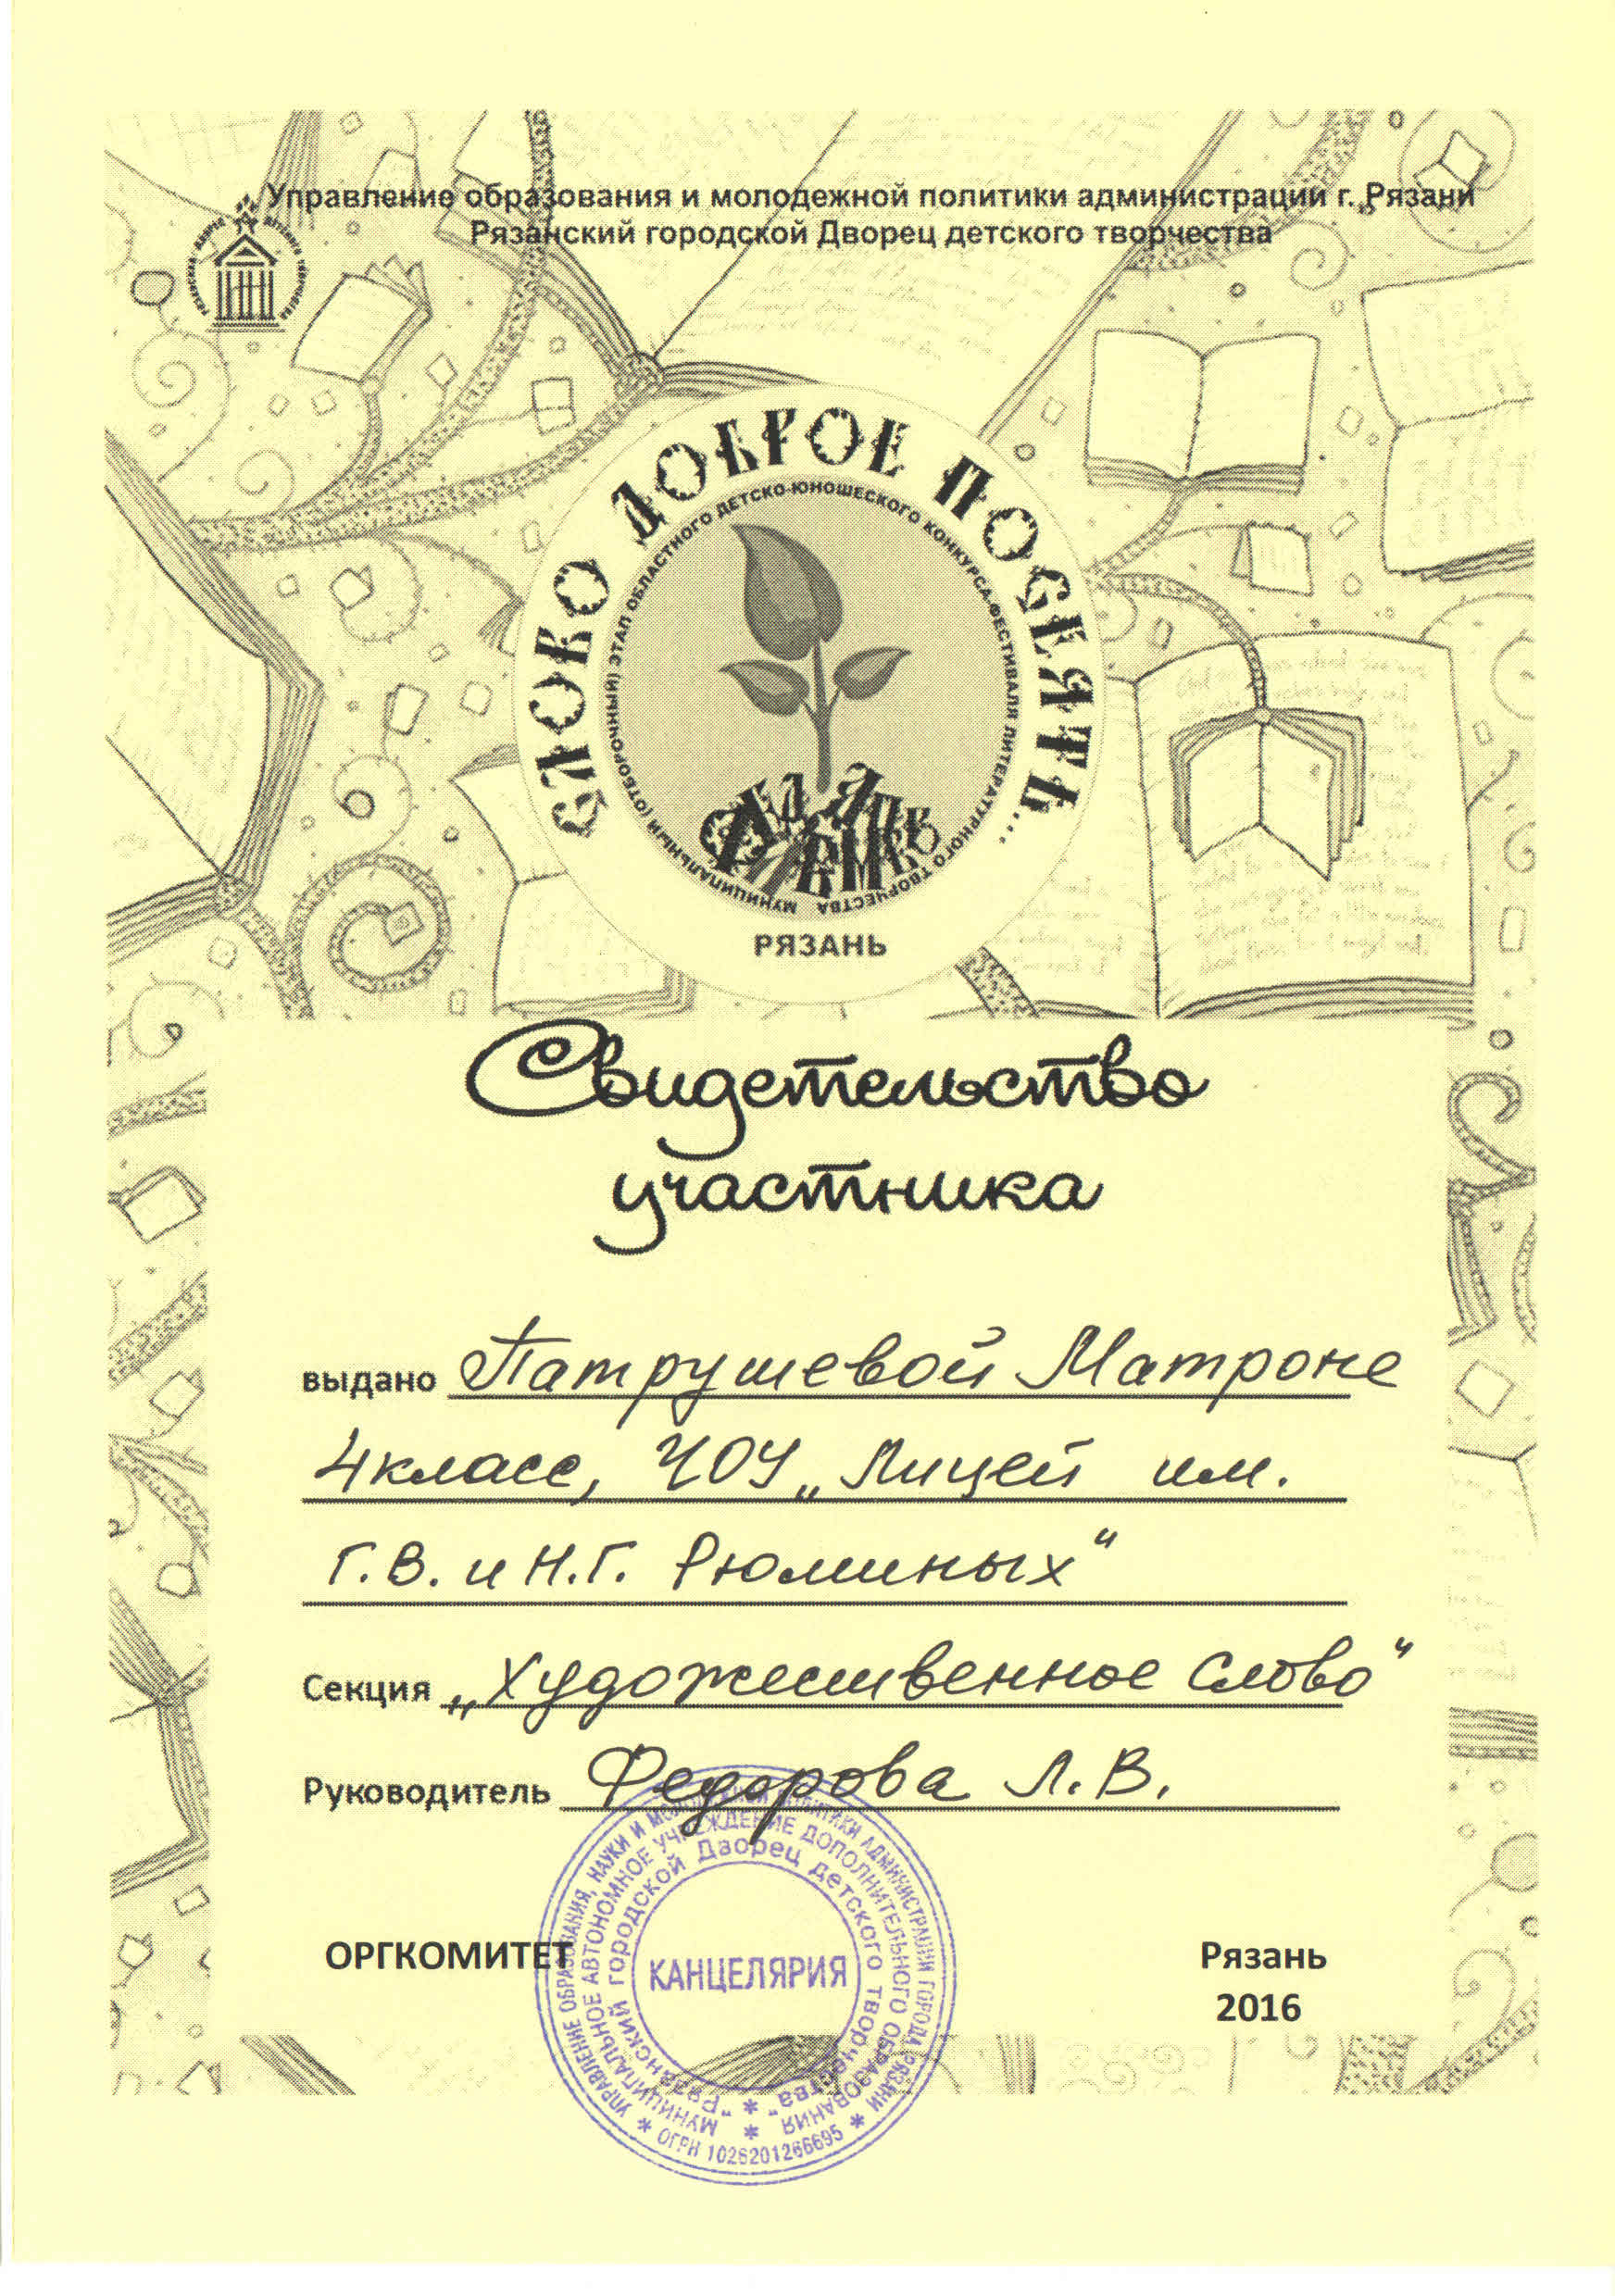 Управление образования и молодежной политики администрации г. Рязани
Рязанский городской Дворец детского творчества
СЛОВО ДОБРОЕ ПОСЕЯТЬ...
МУНИЦИПАЛЬНЫЙ (ОТБОРОЧНЫЙ) ЭТАП ОБЛАСТНОГО ДЕТСКО-ЮНОШЕСКОГО КОНКУРСА-ФЕСТИВАЛЯ ЛИТЕРАТУРНОГО ТВОРЧЕСТВА
РЯЗАНЬ
Свидетельство
участника
выдано Патрушевой Матроне
4 класс, ЧОУ „Лицей им.
Г.В. и Н.Г. Рюминых"
Секция „Художественное слово"
Руководитель Федорова Л.В.
УПРАВЛЕНИЕ ОБРАЗОВАНИЯ, НАУКИ И МОЛОДЕЖНОЙ ПОЛИТИКИ АДМИНИСТРАЦИИ ГОРОДА РЯЗАНИ
* ОГРН 1026201266695 *
МУНИЦИПАЛЬНОЕ АВТОНОМНОЕ УЧРЕЖДЕНИЕ ДОПОЛНИТЕЛЬНОГО ОБРАЗОВАНИЯ *
"Рязанский городской Дворец детского творчества" *
КАНЦЕЛЯРИЯ
ОРГКОМИТЕТ
Рязань
2016